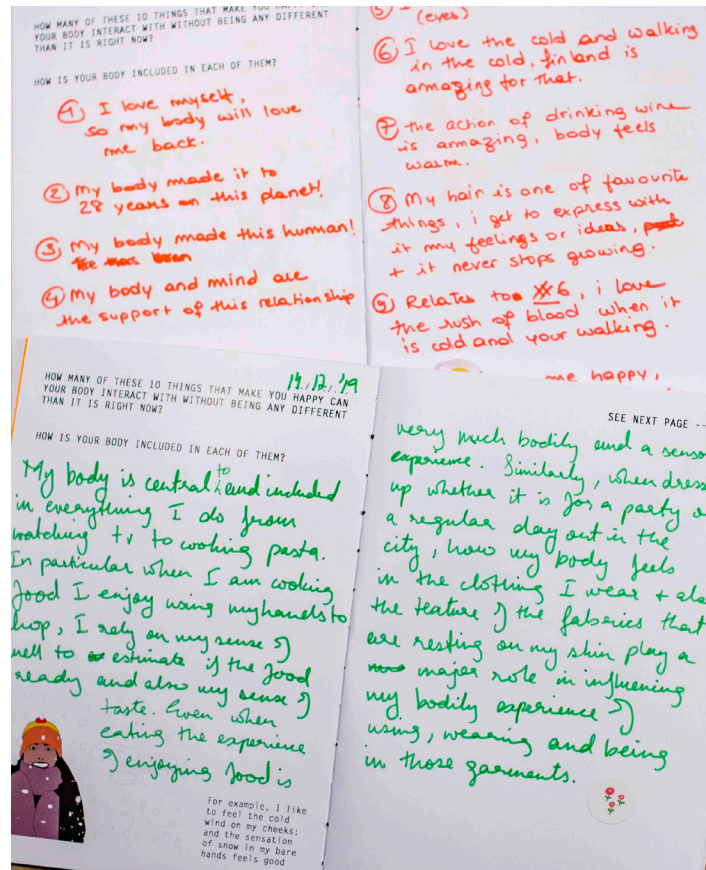 HOW MANY OF THESE 10 THINGS THAT MAKE YOU HAPPY CAN
YOUR BODY INTERACT WITH WITHOUT BEING ANY DIFFERENT
THAN IT IS RIGHT NOW?
HOW IS YOUR BODY INCLUDED IN EACH OF THEM?
1 I love myself,
so my body will love
me back.
2 My body made it to
28 years on this planet!
3 My body made this human!
4 My body and mind are
the support of this relationship
5 I
(eyes)
6 I love the cold and walking
in the cold, finland is
armazing for that.
7 the action of drinking wine
is armazing, body feels
warm.
8 My hair is one of favourite
things, i get to express with
it my feelings or ideas,
+ it never stops growing.
9 Relates to #6, i love
the rush of blood when it
is cold and your walking.
me happy,
14./12/.'19
HOW MANY OF THESE 10 THINGS THAT MAKE YOU HAPPY CAN
YOUR BODY INTERACT WITH WITHOUT BEING ANY DIFFERENT
THAN IT IS RIGHT NOW?
HOW IS YOUR BODY INCLUDED IN EACH OF THEM?
My body is central to and included
in everything I do from
watching tv to cooking pasta.
In particular when I am cooking
food I enjoy using my hands to
hop, I rely on my sense of
mell to estimate if the food
ready and also my sense of
taste. Even when
eating the experience
of enjoying food is
For example, I like
to feel the cold
wind on my cheeks;
and the sensation
of snow in my bare
hands feels good
SEE NEXT PAGE --
very much bodily and a senso
experience. Similarly, when dress
up whether it is for a party o
a regular day out in the
city, how my body feels
in the clothing I wear + als
the texture of the fabrics that
are resting on my skin play a
major role in influening
my bodily experience of
using, wearing and being
in those garments.